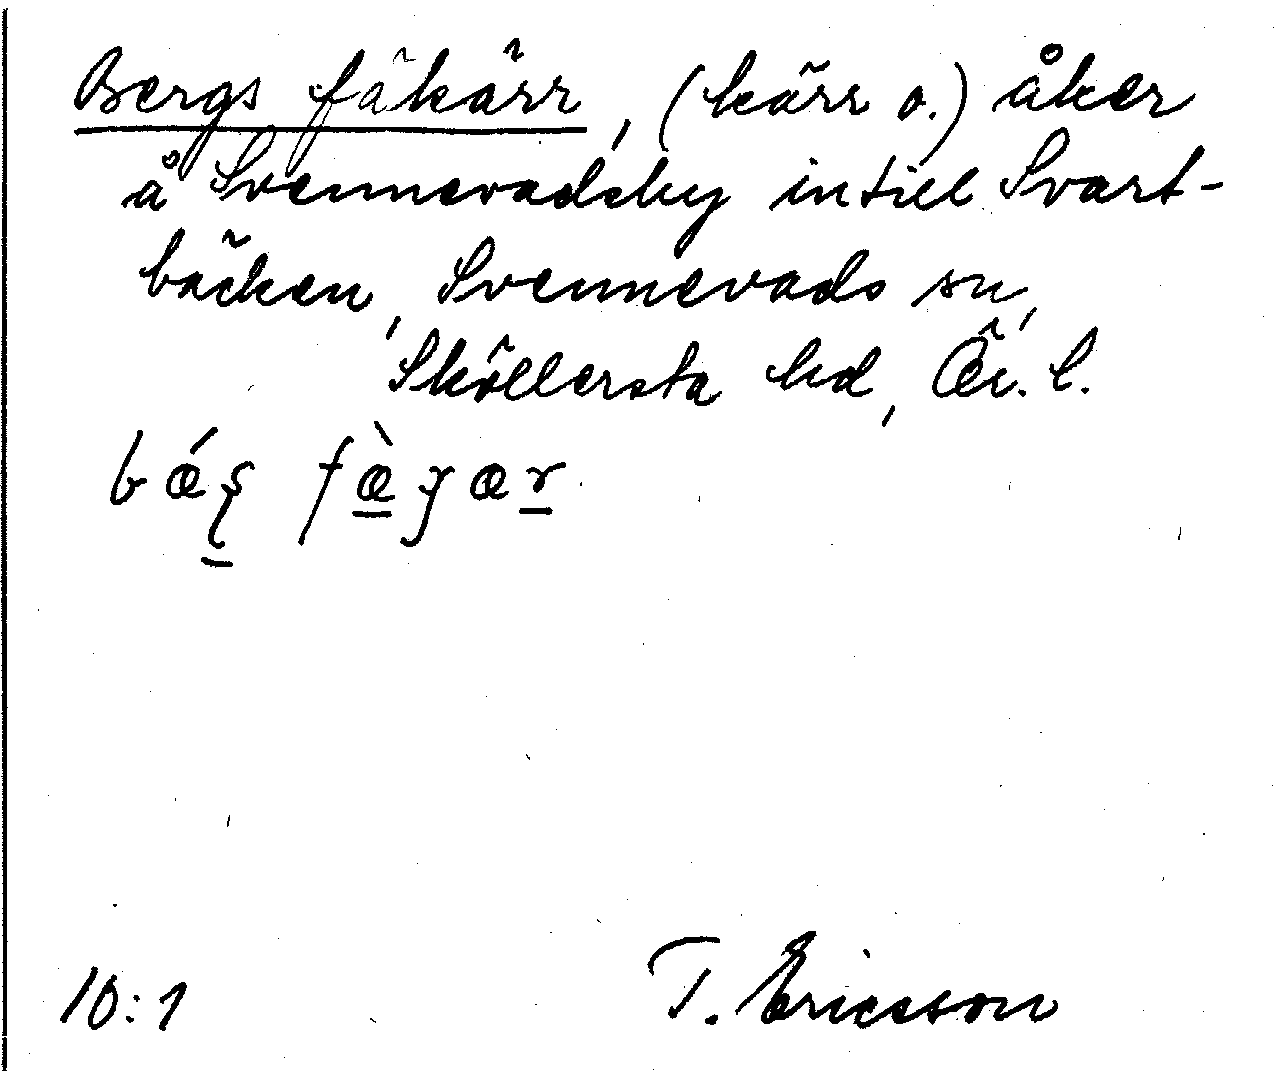 Bergs fäkärr, (kärr o.) åker
å Svennevadsby intill Svart-
bäcken, Svennevads sn,
Sköllersta hd, Ör. l.
10:1
T. Ericsson